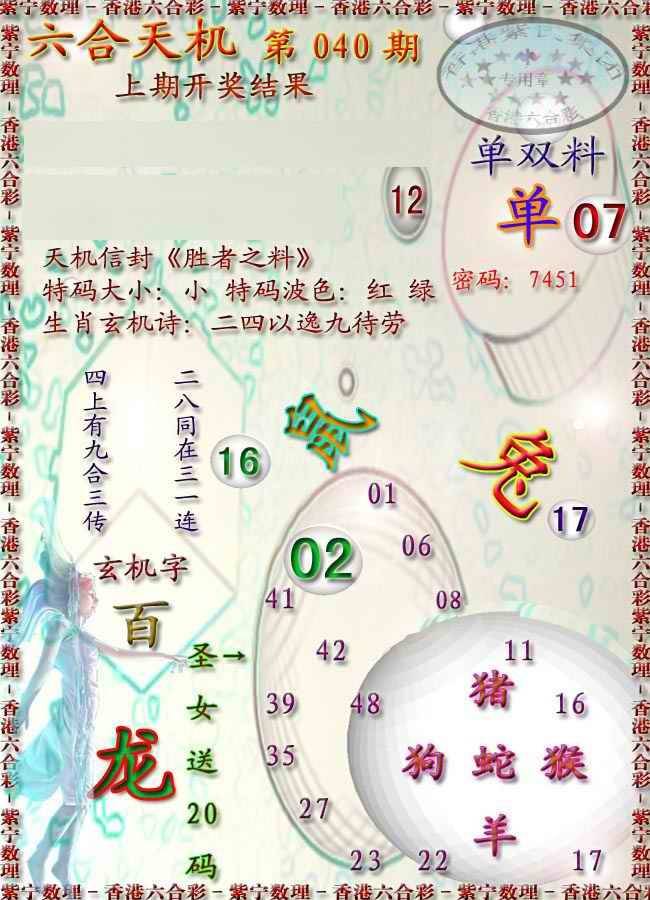 紫宁数理－香港六合彩－紫宁数理－香港六合彩－紫宁数理－香港六合彩
六合天机 第 040 期
上期开奖结果
专用章
香港六合彩
单双料
单 07
12
天机信封《胜者之料》
特码大小：小 特码波色：红 绿
生肖玄机诗：二四以逸九待劳
密码：7451
四上有九合三传
二八同在三一连
16
兔
17
01
06
02
41
08
玄机字
百
龙
圣→
女
送
20
码
42
11
39
48
猪
16
35
狗 蛇 猴
27
羊
23
22
17
紫宁数理－香港六合彩－紫宁数理－香港六合彩－紫宁数理－香港六合彩